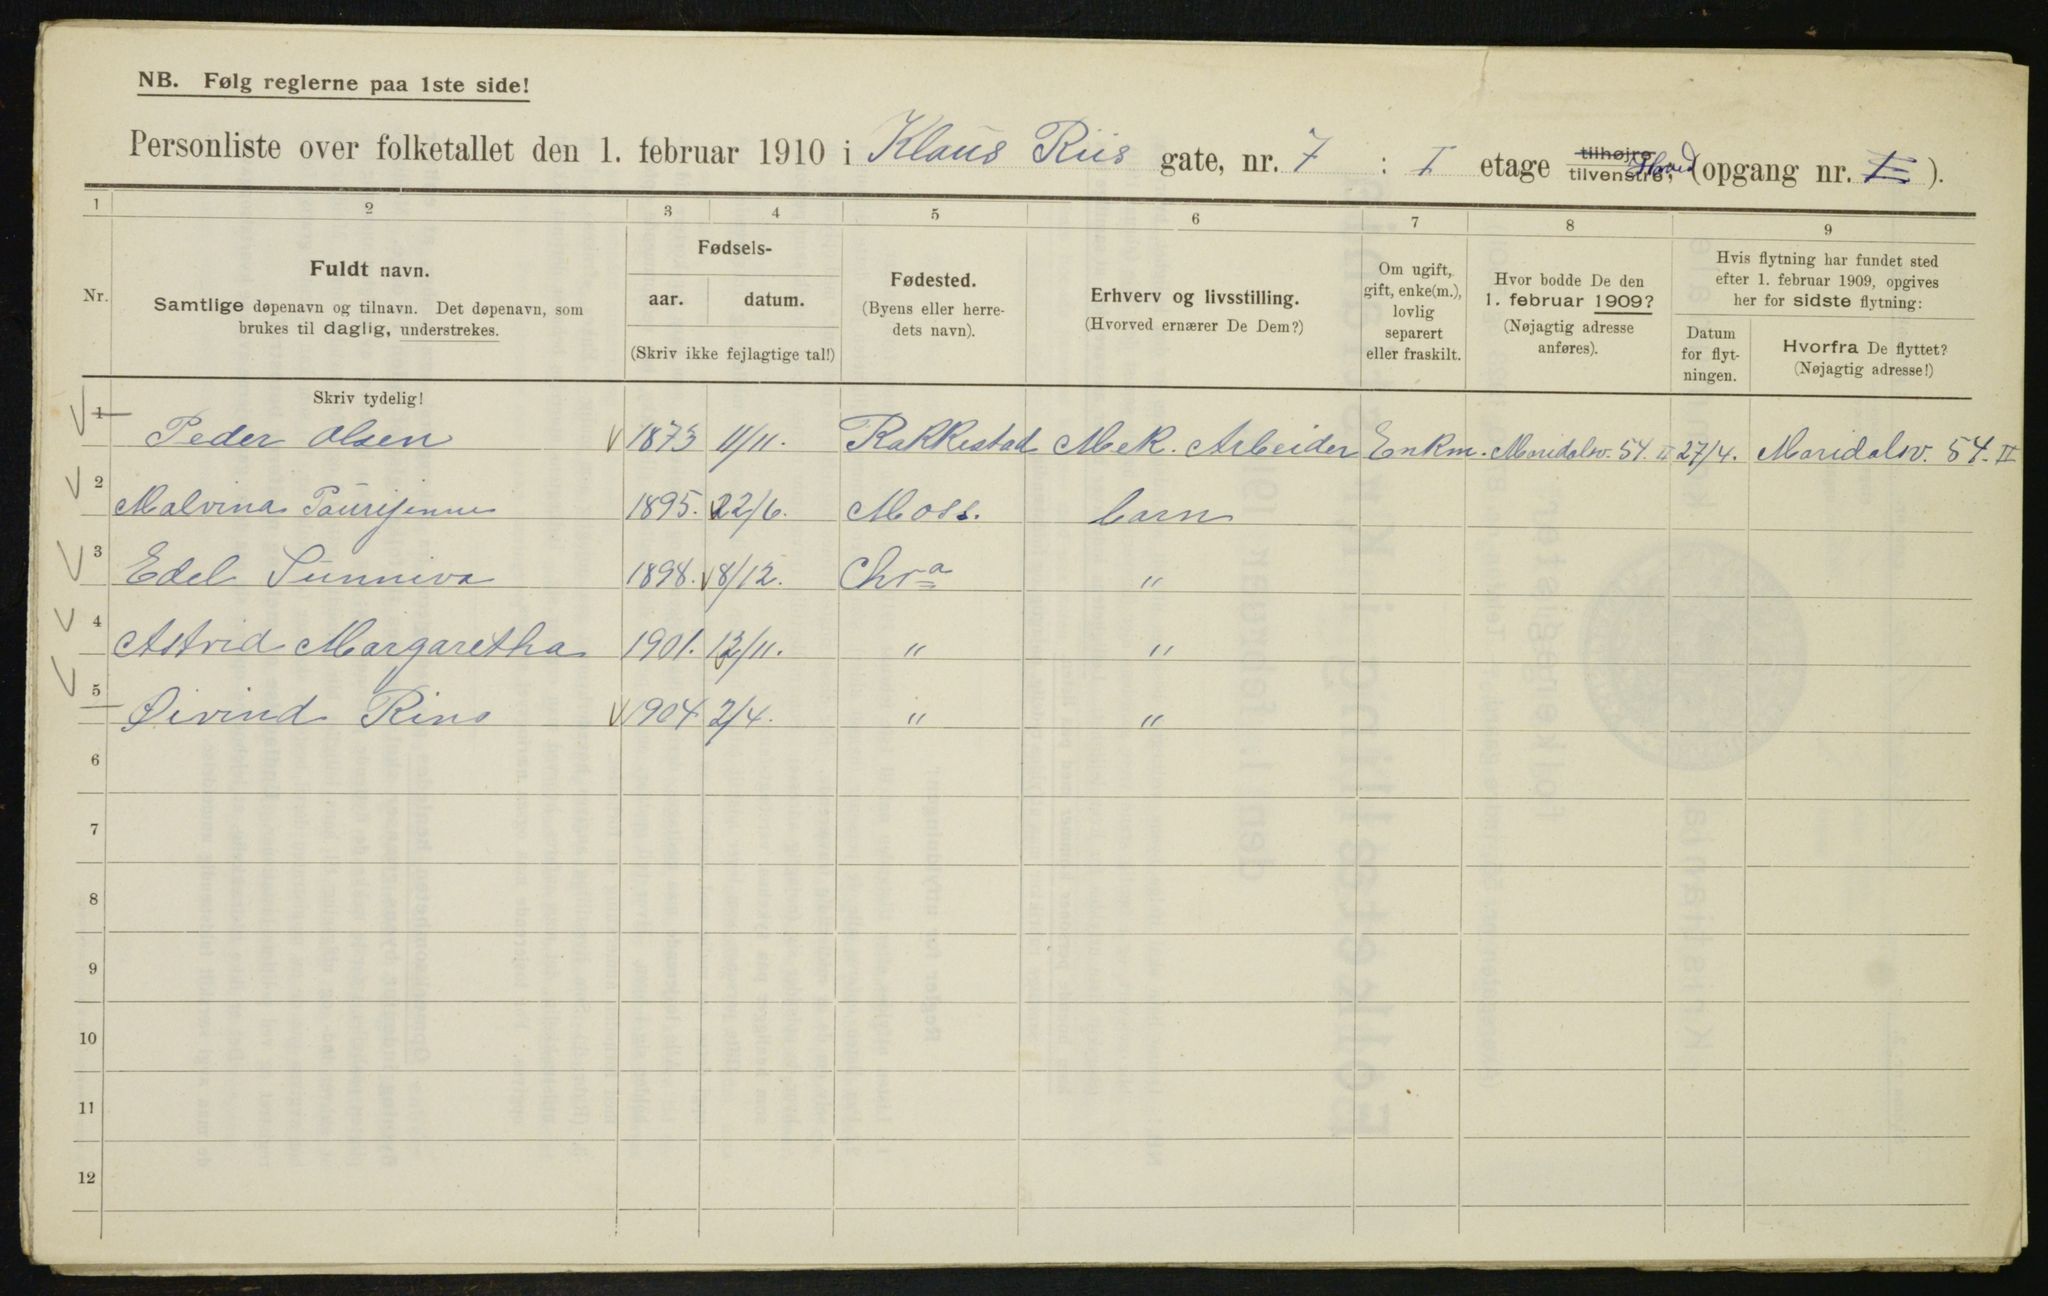 NB. Følg reglerne paa 1ste side!
Personliste over folketallet den 1. februar 1910 i Klaus Riis gate, nr. 7 : I etage tilhøjre tilvenstre, (opgang nr. I ).
1 2 3 4 5 6 7 8 9
Nr.
Fuldt navn.
Samtlige døpenavn og tilnavn. Det døpenavn, som
brukes til daglig, understrekes.
Fødsels-
aar. datum.
(Skriv ikke fejlagtige tal!)
Fødested.
(Byens eller herre-
dets navn).
Erhverv og livsstilling.
(Hvorved ernærer De Dem?)
Om ugift,
gift, enke(m.),
lovlig
separert
eller fraskilt.
Hvor bodde De den
1. februar 1909?
(Nøjagtig adresse
anføres).
Hvis flytning har fundet sted
efter 1. februar 1909, opgives
her for sidste flytning:
Datum
for flyt-
ningen.
Hvorfra De flyttet?
(Nøjagtig adresse!)
Skriv tydelig!
1 Peder Olsen 1873 11/11. Rakkestad Mek. Arbeider Enkm. Maridalsv. 54. II 27/4. Maridalsv. 54. II
2 Malvina 1895. 22/6. Moss. barn
3 Edel Sunniva 1898. 8/12. Chra "
4 Astrid Margaretha 1901. 13/11. " "
5 Øivind 1904 2/4. " "
6
7
8
9
10
11
12